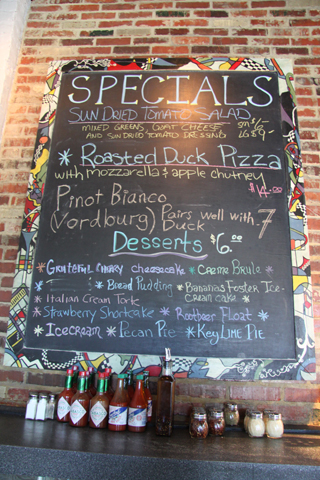 SPECIALS
SUN DRIED TOMATO SALAD
MIXED GREENS, GOAT CHEESE
AND SUN DRIED TOMATO DRESSING
Roasted Duck Pizza
with mozzarella & apple chutney
$14.00
Pinot Bianco
(Vordburg) Pairs well with 7
Duck
Desserts $6.00
Cheesecake * Creme Brule *
* Bread Pudding * Bananas Foster Ice-
Cream cake *
* Italian Cream Tork
* Strawberry Shortcake * Rootbeer Float *
* Icecream * Pecan Pie * Key Lime Pie